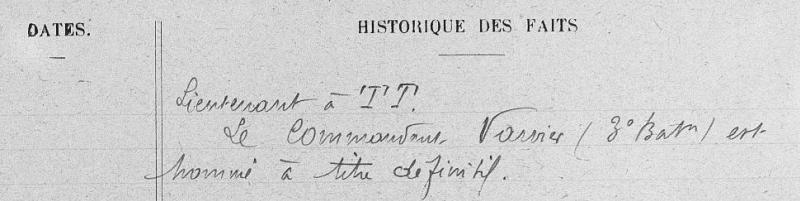 DATES.
HISTORIQUE DES FAITS
Lieutenant à T.T.
Le Commandant Vassier (3e Batn) est
nommé à titre définitif.